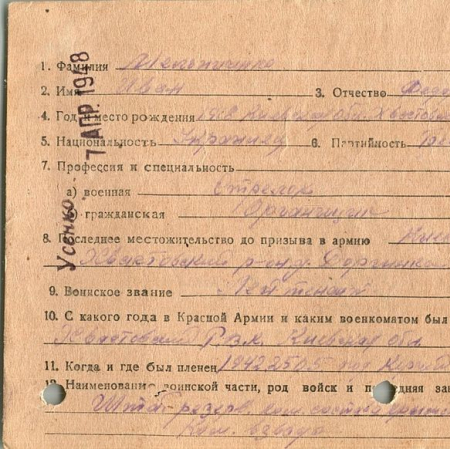 1. Фамилия Мельниченко
2. Имя Иван 3. Отчество
4. Год и место рождения 1918 Киевская обл. Хвастовск
5. Национальность Украинец 6. Партийность
7. Профессия и специальность
а) военная стрелок
гражданская
8. Последнее местожительство до призыва в армию Киев
Хвастовский р-он
9. Воинское звание Лейтенант
10. С какого года в Красной Армии и каким военкоматом был
Хвастовский Р.В.К. Киевская обл.
11. Когда и где был пленен 1942
12. Наименование воинской части, род войск и
Штаб резерв. ком. состава
Ком. взвода
Усенко
7 АПР. 1948